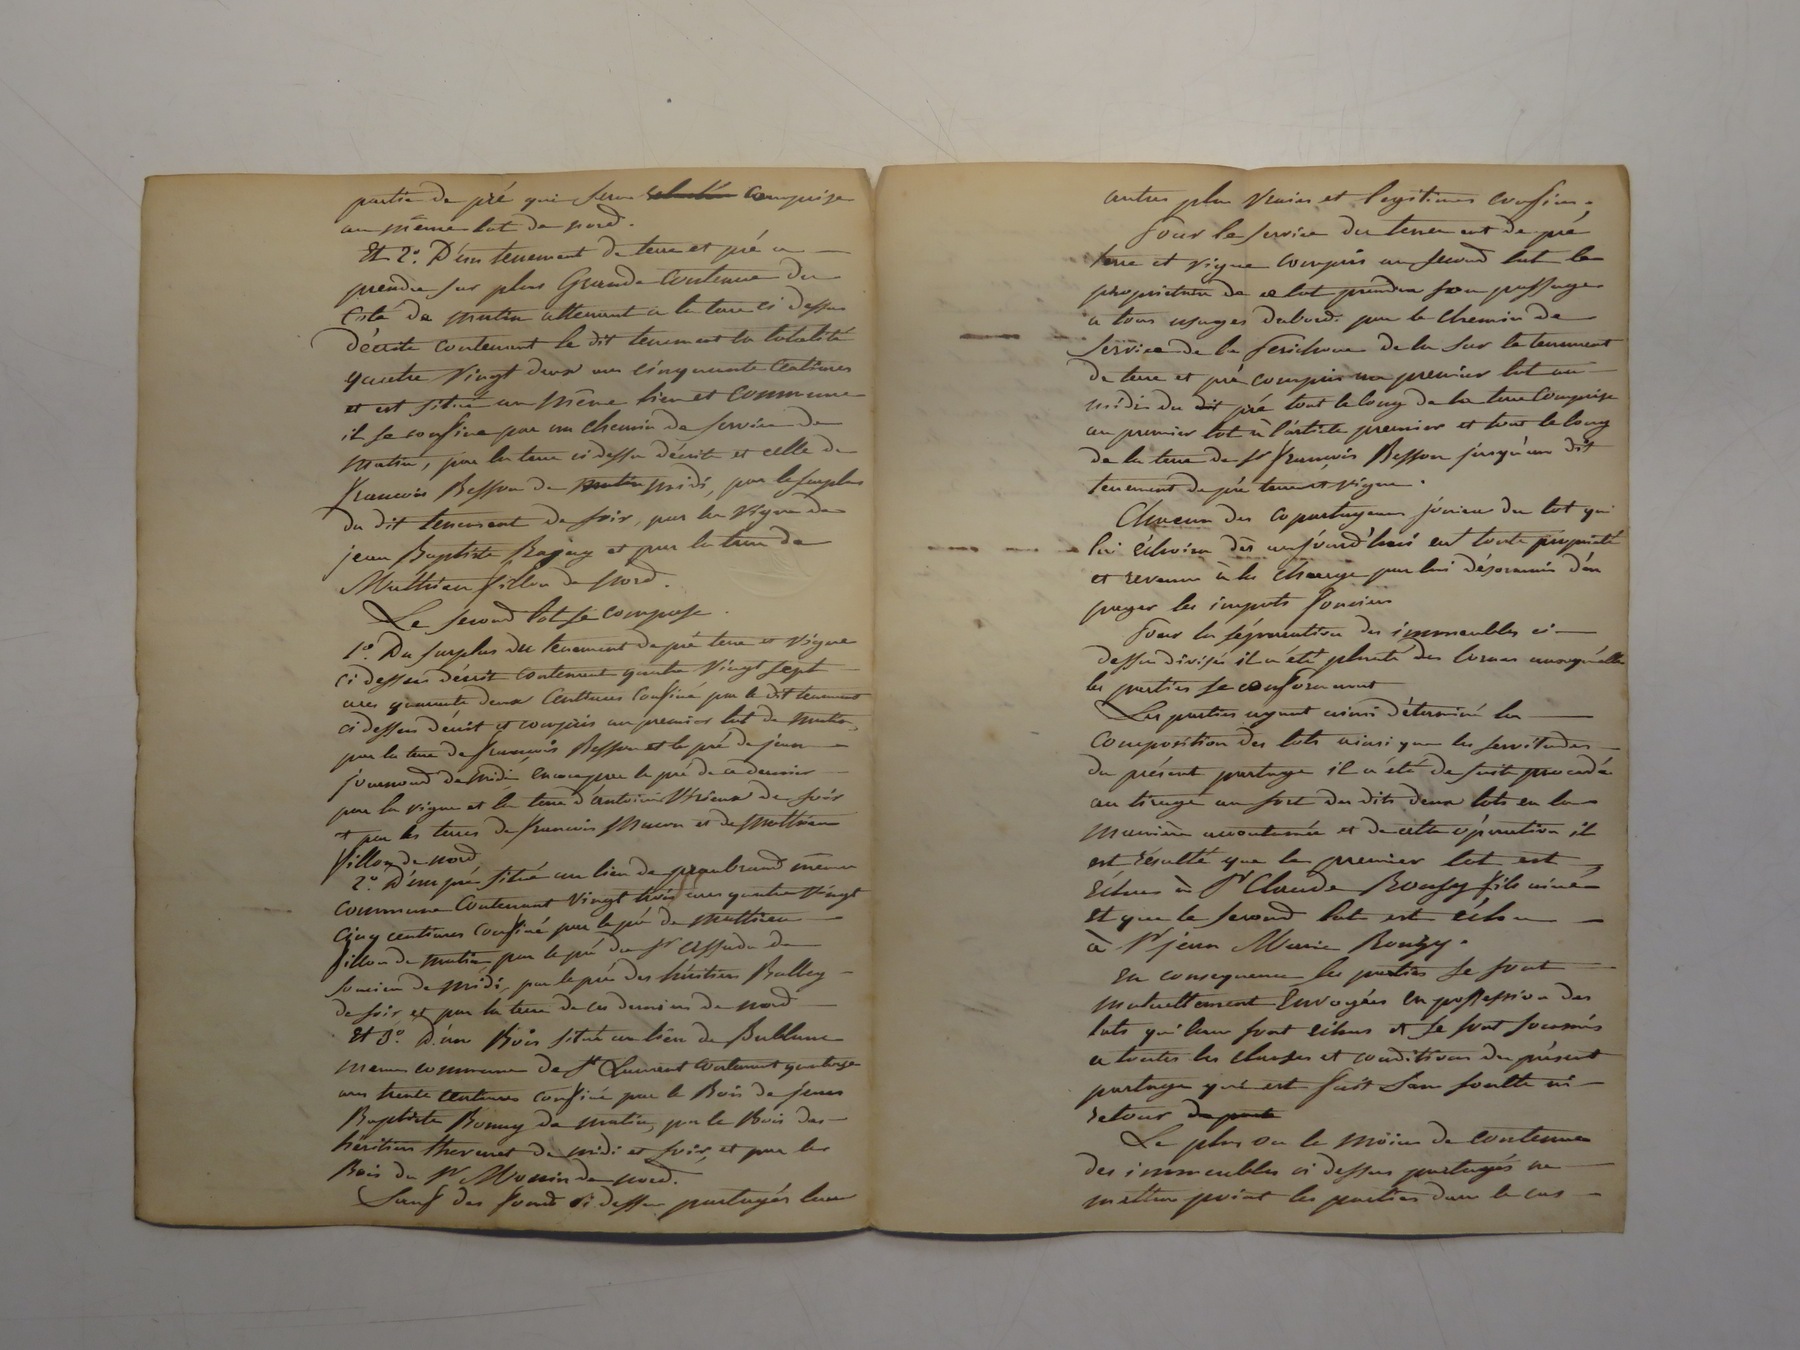 partie de pré qui sera comprise
au même lot de nord.
Et 2º. D'un tenement de terre et pré a
prendre sur plus Grande Contenue du
Coté de matin attenant a la terre ci dessus
décrite contenant le dit tenement la totalité
quatre Vingt deux ares cinquante Centiares
et est situé au même lieu et Commune
il se confine par un chemin de service de
matin, par la terre ci dessus décrite et celle de
francois Besson de matin midi, par le surplus
du dit tenement de soir, par la Vigne de
jean Baptiste Ragny et par la terre de
Mathieu fillon de nord.
Le second lot se compose.
1º. Du surplus du tenement de pré terre et Vigne
ci dessus décrit contenant quatre Vingt sept
ares quarante deux Centiares confiné par le dit tenement
ci dessus décrit et compris au premier lot de matin,
par la terre de francois Besson et le pré de jean
journoud de midi, encore par le pré de ce dernier
par la vigne et la terre d'antoine Vérieux de soir
et par les terres de francois Macon et de Mathieu
fillon de nord
2º. D'un pré situé au lieu de même
commune Contenant Vingt trois ares quatre Vingt
Cinq centiares confiné par le pré de Mathieu
fillon de matin par le pré du Sr de
de midi, par le pré des héritiers Balley
de soir et par la terre de ces derniers de nord
Et 3º. D'un Bois situé au lieu de
meme commune de St Laurent Contenant quatorze
ares trente centiares confiné par le Bois de jean
Baptiste Bonny de matin, par le Bois des
héritiers thevenet de midi et soir, et par le
Bois du Sr Monin de nord.
Sauf des fonds ci dessus partagés leurs
autres plus Vrais et legitimes confins.
Pour le service du tenement de pré
terre et vigne compris au second lot le
proprietaire de ce lot prendra son passage
a tous usages dabord par le chemin de
service de la de la sur le tenement
de terre et pré compris au premier lot au
midi du dit pré tout le long de la terre Comprise
au premier lot à l'article premier et tout le long
de la terre de Sr francois Besson jusqu'au dit
tenement de pré terre et vigne.
Chacun des copartageans jouira du lot qui
lui échoira dès aujourd'hui en toute propriété
et revenu à la charge par lui désormais d'en
payer les impots fonciers
Pour la séparation des immeubles ci
dessus divisés il a été planté des bornes auxquelles
les parties se conformeront
Les parties ayant ainsi déterminé la
composition des lots ainsi que les servitudes
du présent partage il a été de suite procédé
au tirage au sort des dits deux lots en la
manière accoutumée et de cette opération il
est résulté que le premier lot est
échu à Sr Claude Bouzy fils ainé
et que le second lot est échu
à Sr jean Marie Bouzy.
En consequence les parties se sont
mutuellement Envoyées en possession des
lots qui leur sont echus et se sont soumis
a toutes les clauses et conditions du présent
partage qui est fait San soulte ni
retour de parte
Le plus ou le moins de contenue
des immeubles ci dessus partagés ne
mettra point les parties dans le cas